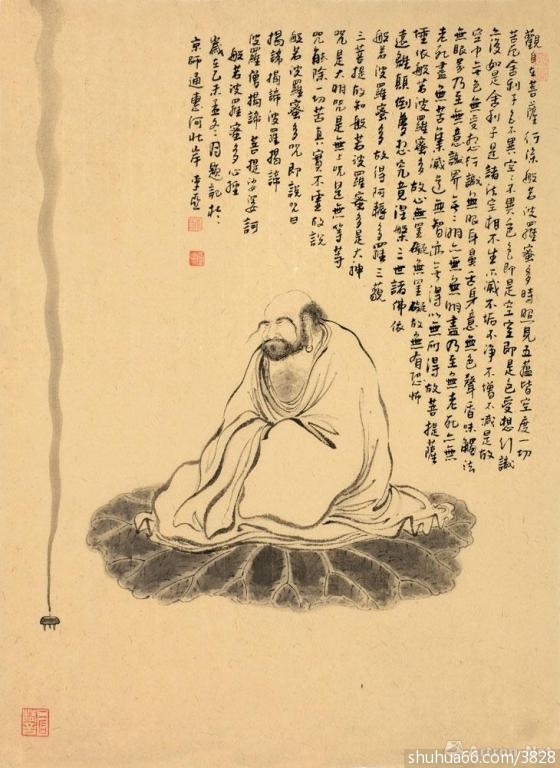 觀自在菩薩行深般若波羅蜜多時照見五蘊皆空度一切
苦厄舍利子色不異空空不異色色即是空空即是色受想行識
亦復如是舍利子是諸法空相不生不滅不垢不淨不增不減是故
空中無色無受想行識無眼耳鼻舌身意無色聲香味觸法
無眼界乃至無意識界無無明亦無無明盡乃至無老死亦無
老死盡無苦集滅道無智亦無得以無所得故菩提薩
埵依般若波羅蜜多故心無罣礙無罣礙故無有恐怖
遠離顛倒夢想究竟涅槃三世諸佛依
般若波羅蜜多故得阿耨多羅三藐
三菩提故知般若波羅蜜多是大神
咒是大明咒是無上咒是無等等
咒能除一切苦真實不虛故說
般若波羅蜜多咒即說咒曰
揭諦揭諦波羅揭諦
波羅僧揭諦菩提娑婆訶
般若波羅蜜多心經
歲在乙未孟冬月題記於
京師通惠河北岸
shuhua66.com/3828